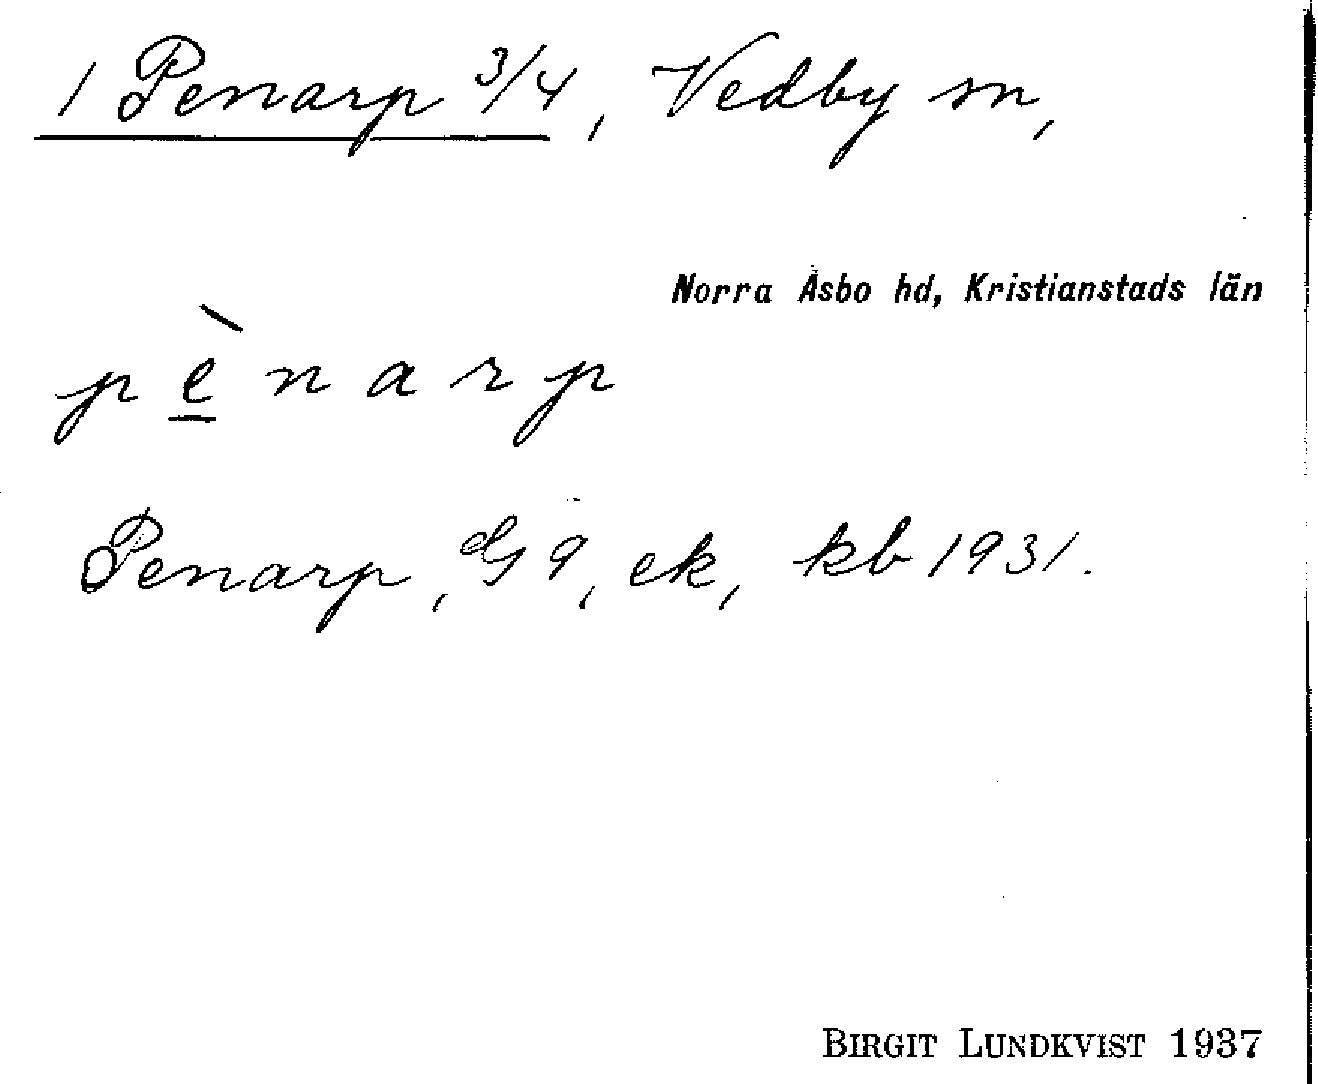 1 Penarp 3/4, Vedby sn,
Norra Åsbo hd, Kristianstads län
p è n a r p
Penarp, G 9, ek, kb 1931.
BIRGIT LUNDKVIST 1937